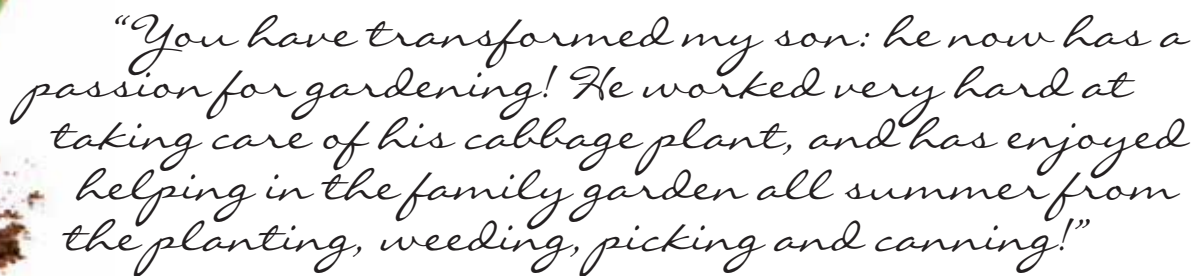 “You have transformed my son: he now has a
passion for gardening! He worked very hard at
taking care of his cabbage plant, and has enjoyed
helping in the family garden all summer from
the planting, weeding, picking and canning!”